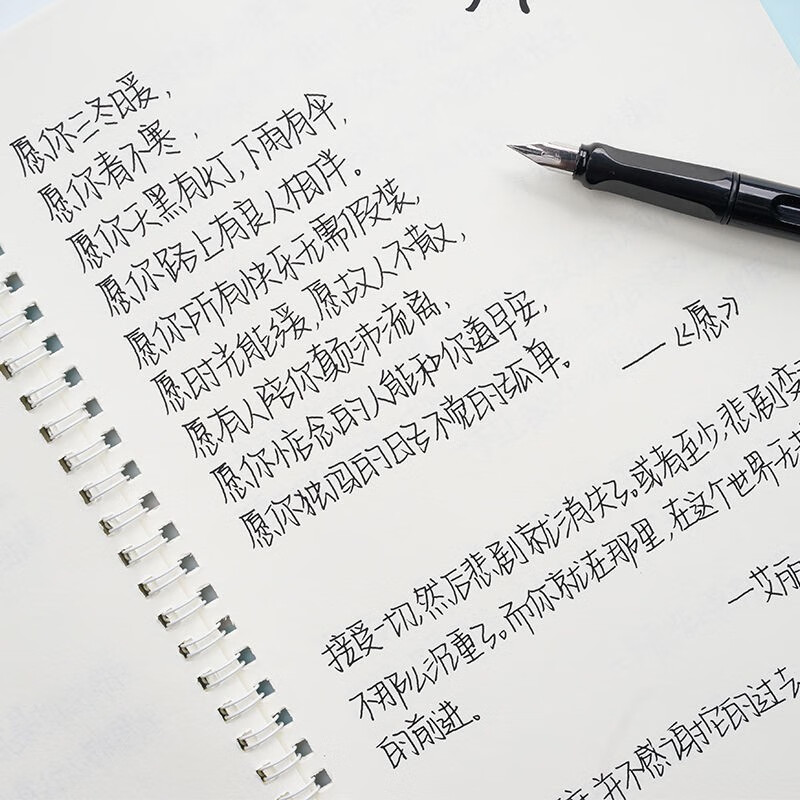 愿你三冬暖，
愿你春不寒，
愿你天黑有灯，下雨有伞，
愿你路上有良人相伴。
愿你所有快乐无需假装，
愿时光能缓，愿故人不散，
愿有人陪你颠沛流离，
愿你惦念的人能和你道早安，
愿你独闯的日子不觉的孤单。
——《愿》
接受一切，然后悲剧就消失了。或者至少，悲剧变
不那么沉重了。而你就在那里，在这个世界无
的前进。
—艾丽
并不感谢它的过去